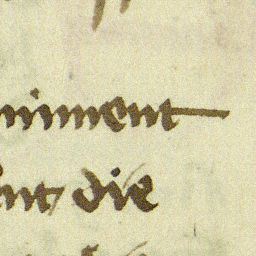 nimment
nt die